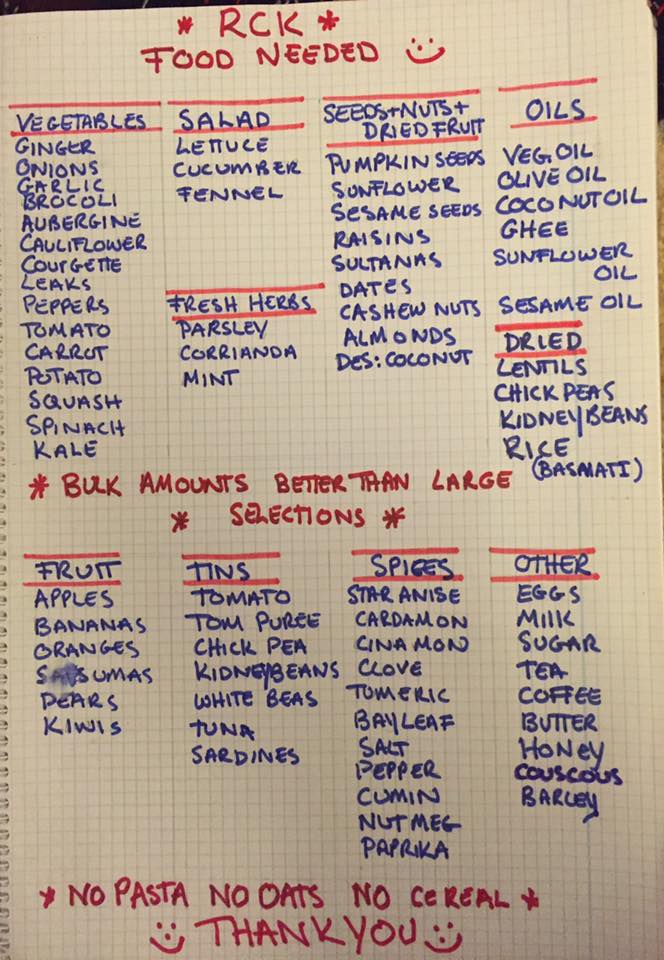 * RCK *
FOOD NEEDED
VEGETABLES
GINGER
ONIONS
GARLIC
BROCOLI
AUBERGINE
CAULIFLOWER
COURGETTE
LEAKS
PEPPERS
TOMATO
CARROT
POTATO
SQUASH
SPINACH
KALE
SALAD
LETTUCE
CUCUMBER
FENNEL
FRESH HERBS
PARSLEY
CORRIANDA
MINT
SEEDS+NUTS+
DRIED FRUIT
PUMPKIN SEEDS
SUNFLOWER
SESAME SEEDS
RAISINS
SULTANAS
DATES
CASHEW NUTS
ALMONDS
DES: COCONUT
OILS
VEG OIL
OLIVE OIL
COCONUT OIL
GHEE
SUNFLOWER
OIL
SESAME OIL
DRIED
LENTILS
CHICK PEAS
KIDNEY BEANS
RICE
(BASMATI)
* BULK AMOUNTS BETTER THAN LARGE
* SELECTIONS *
FRUIT
APPLES
BANANAS
ORANGES
SATSUMAS
PEARS
KIWIS
TINS
TOMATO
TOM PUREE
CHICK PEA
KIDNEY BEANS
WHITE BEAS
TUNA
SARDINES
SPICES
STAR ANISE
CARDAMON
CINAMON
CLOVE
TUMERIC
BAYLEAF
SALT
PEPPER
CUMIN
NUTMEG
PAPRIKA
OTHER
EGGS
MILK
SUGAR
TEA
COFFEE
BUTTER
HONEY
COUSCOUS
BARLEY
* NO PASTA NO OATS NO CEREAL *
THANK YOU